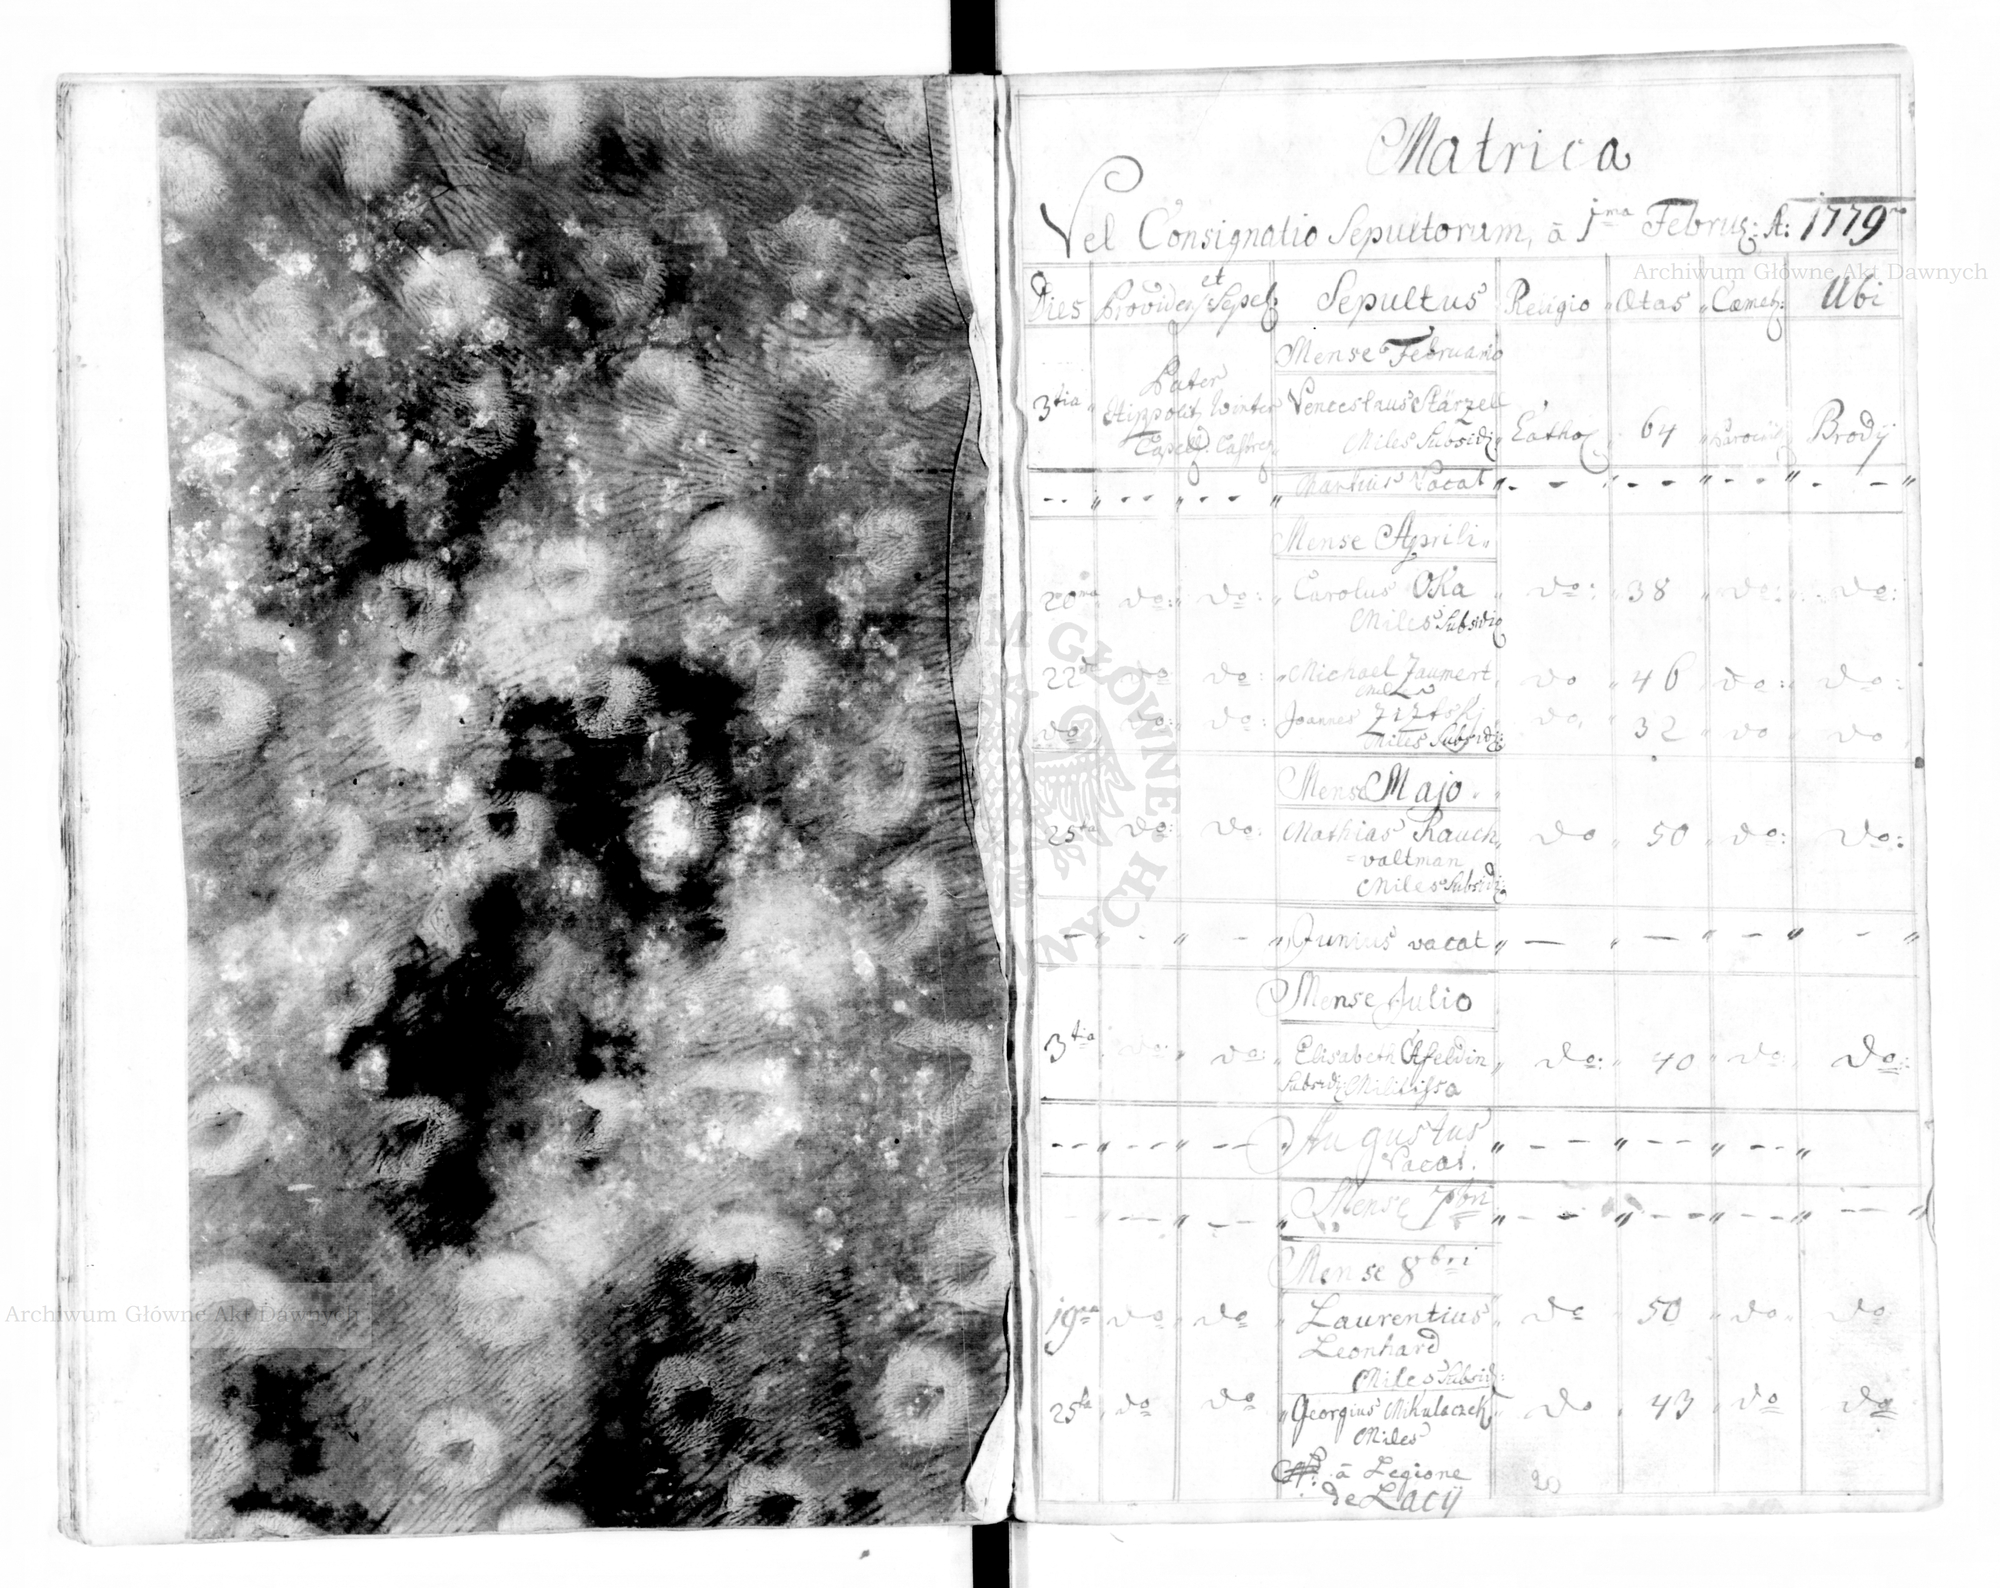 Matrica
Vel Consignatio Sepultorum, à 1ma Februę: A: 1779
Dies Providens et Sepel: Sepultus Religio Ætas Cæmet: Ubi
Mense Februario
3tia Pater Hippolit Winter Capell: Castren: Venceslaus Stärzell Miles Subsidę Catho: 64 Brodÿ
Martius Vacat
Mense Aprili
20ma do: do: Carolus Oka Miles Subsidę do: 38 do: do:
22da do do: Michael Zaumert do 46 do: do:
do do: do: Joannes Miles Subsid: do. 32 do do
Mense Majo
25ta do: do: Mathias Rauch=valtman Miles Subsid: do 50 do: do:
Junius vacat
Mense Julio
3tia do: do: Elisabeth Afeldin Subsid: Militissa do: 40 do: do:
Augustus Vacat.
Mense 7bri
Mense 8bri
19na do do Laurentius Leonhard Miles Subsid: do 50 do do
25ta do do Georgius Mikulaczek Miles do 43 do do
à Legione
de Lacÿ
Archiwum Główne Akt Dawnych
Archiwum Główne Akt Dawnych